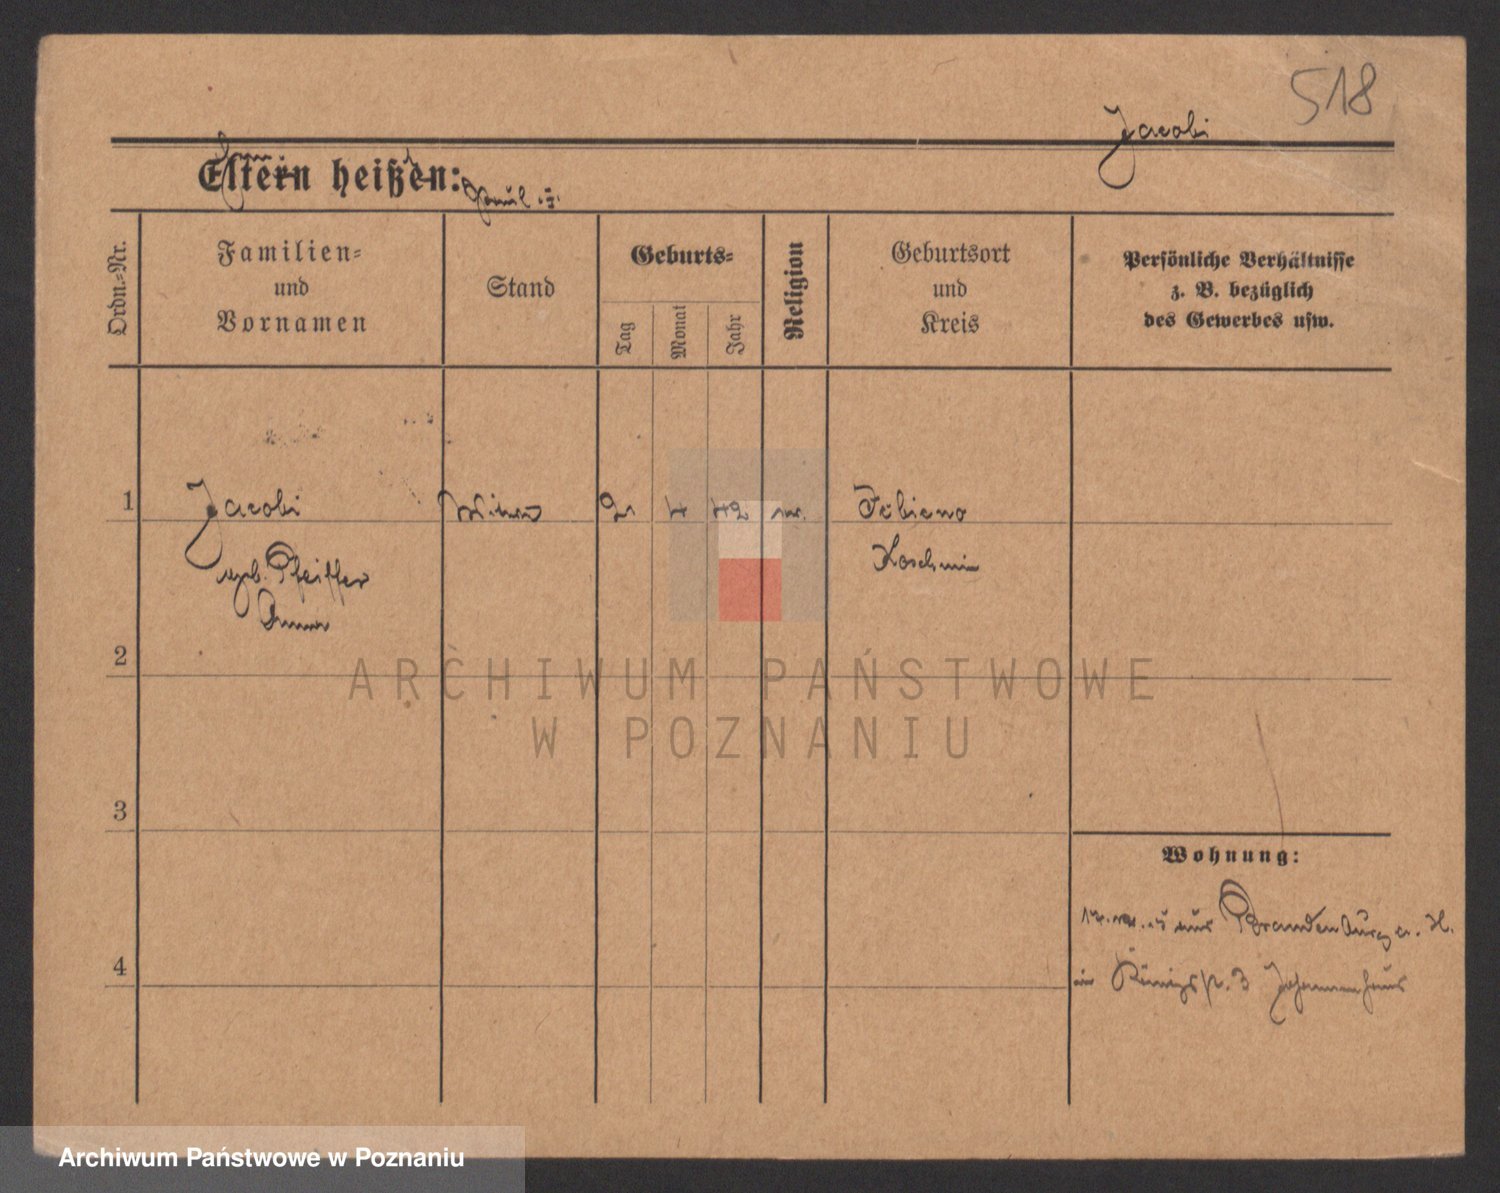 518
Jacobi
Eltern heißen:
Paul
Ordn.=Nr.
Familien=
und
Vornamen
Stand
Geburts=
Tag
Monat
Jahr
Religion
Geburtsort
und
Kreis
Persönliche Verhältnisse
z. B. bezüglich
des Gewerbes usw.
1
Jacobi
Witwe
2
4
42
Koschmin
geb. Pfeiffer
Anna
2
ARCHIWUM PAŃSTWOWE
W POZNANIU
3
Wohnung:
aus Brandenburg a. H.
4
in Königstr. 3 Johannenhaus
Archiwum Państwowe w Poznaniu